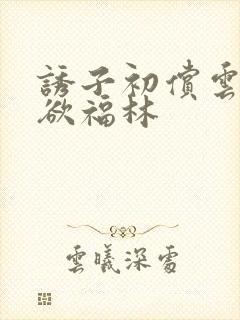 誘子初償雲
欲福林
雲曦深處